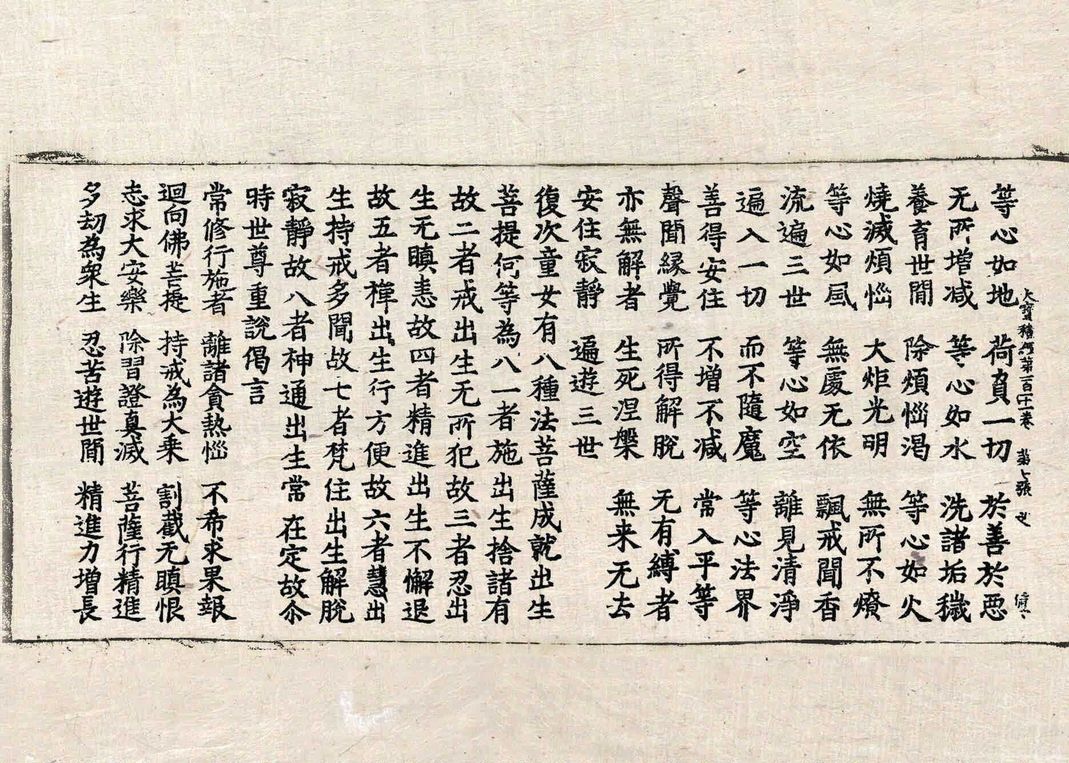 等心如地　荷負一切　於善於惡
大寶積經第一百一十一卷　第七張　必　傷一
无所增减　等心如水　洗諸垢穢
養育世間　除煩惱渴　等心如火
燒滅煩惱　大炬光明　無所不燎
等心如風　無處无依　飄戒聞香
流遍三世　等心如空　離見清淨
遍入一切　而不隨魔　等心法界
善得安住　不增不减　常入平等
聲聞緣覺　所得解脫　无有縛者
亦無解者　生死涅槃　無来无去
安住寂靜　遍遊三世
復次童女有八種法菩薩成就出生
菩提何等為八一者施出生捨諸有
故二者戒出生无所犯故三者忍出
生无瞋恚故四者精進出生不懈退
故五者禪出生行方便故六者慧出
生持戒多聞故七者梵住出生解脫
寂靜故八者神通出生常在定故尒
時世尊重說偈言
常修行施者　離諸貪熱惱　不希求果報
迴向佛菩提　持戒為大乘　割截无瞋恨
志求大安樂　除習證真滅　菩薩行精進
多劫為衆生　忍苦遊世間　精進力增長